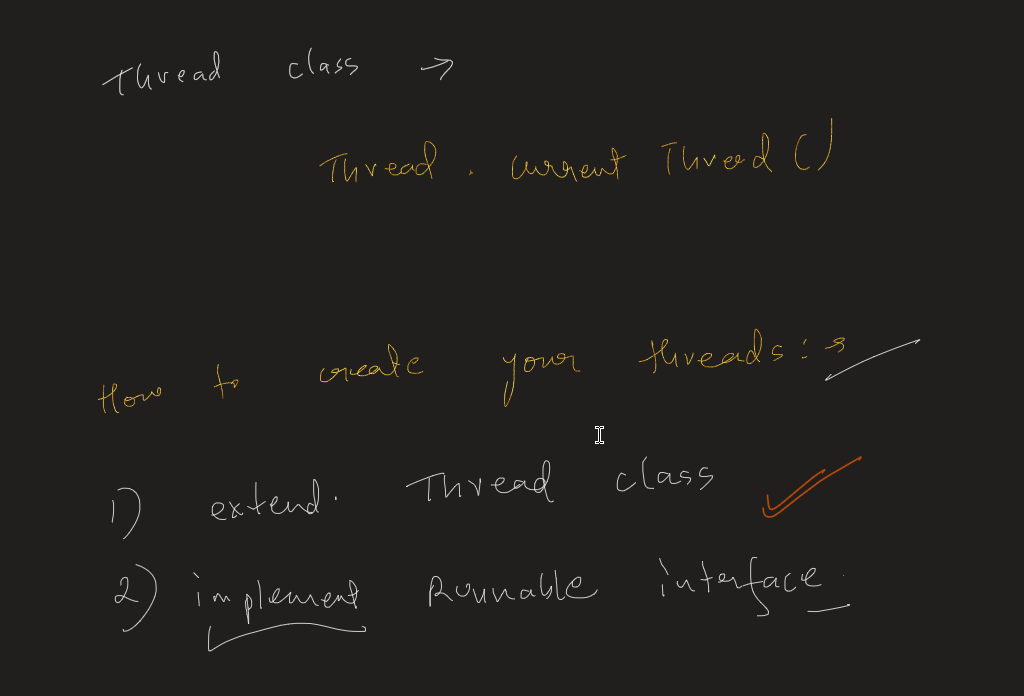 Thread class →
Thread . current Thread ()
How to create your threads : →
1) extend. Thread class
2) implement Runnable interface